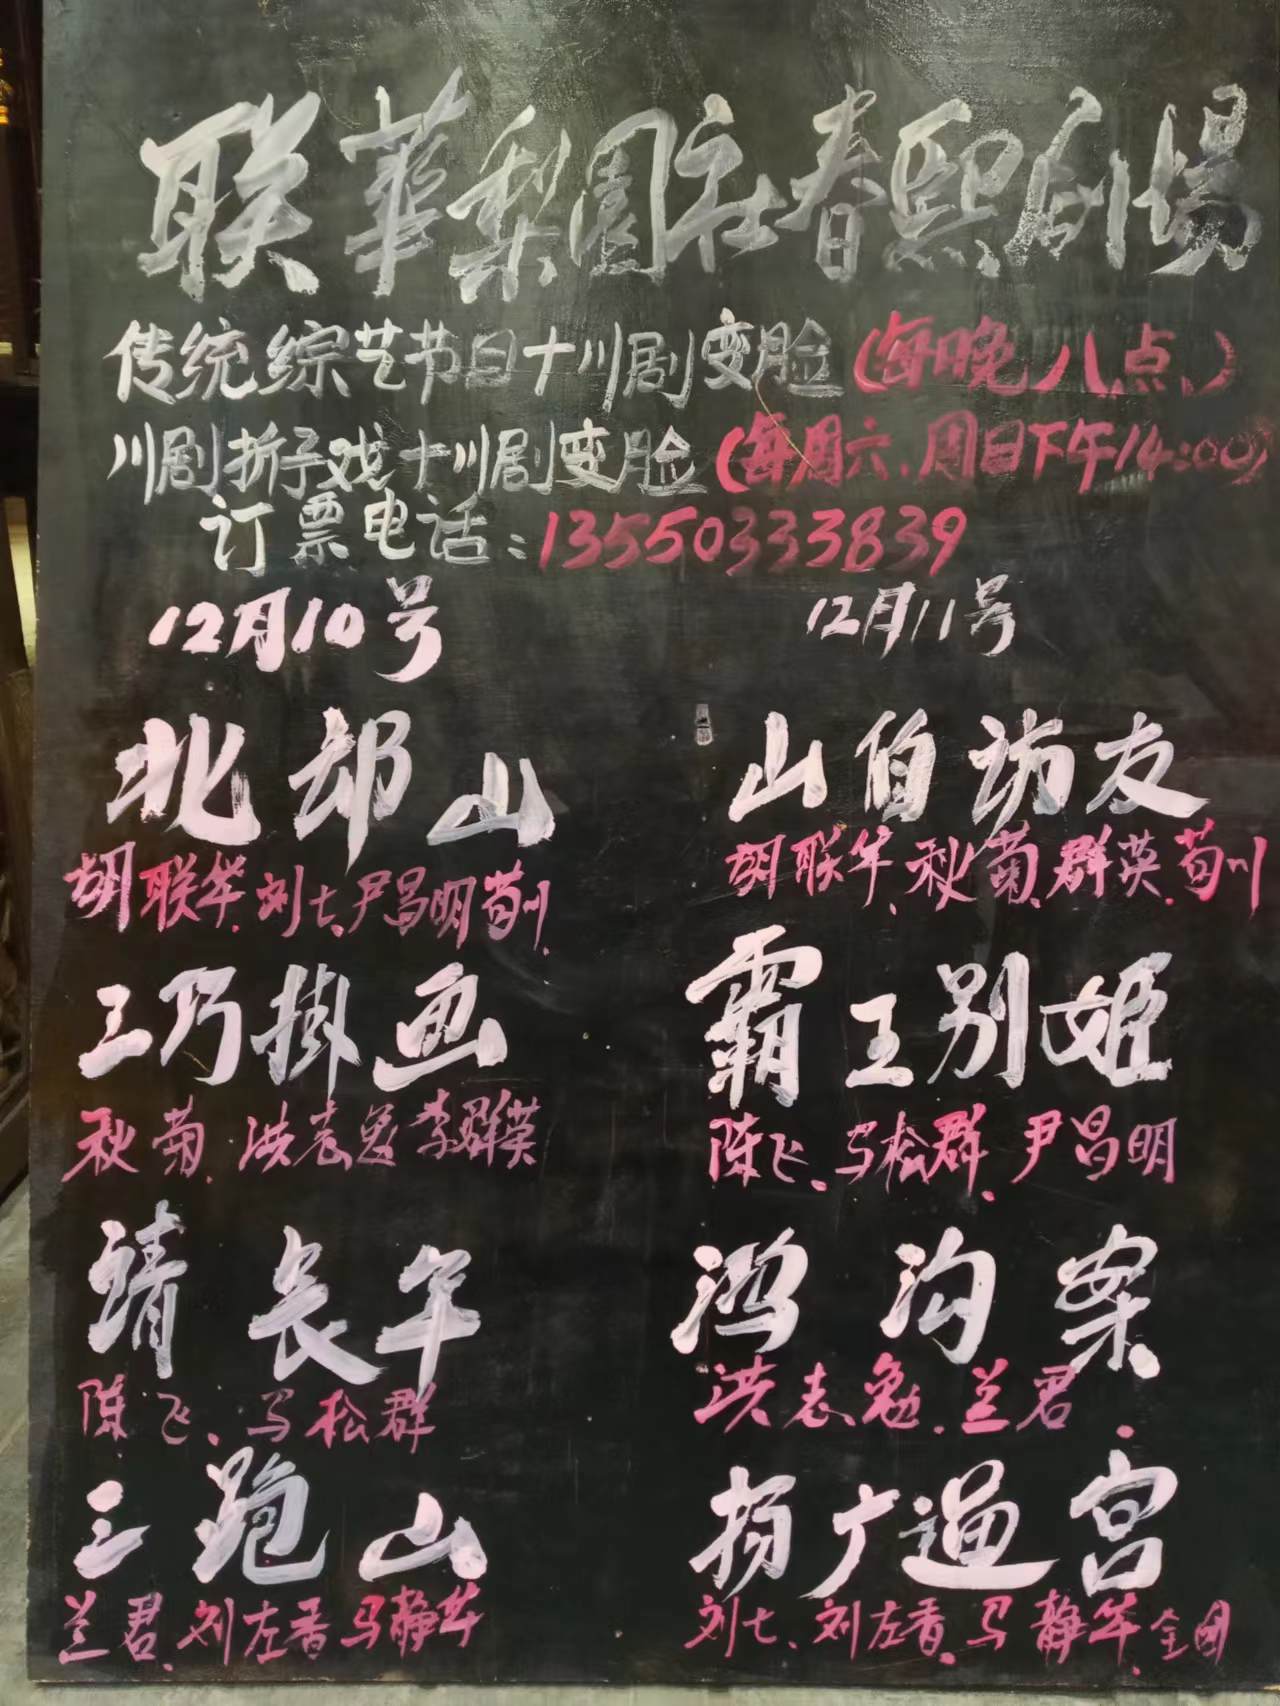 联華梨園社春熙剧場
传统综艺节目十川剧变脸(每晚八点、)
川剧折子戏十川剧变脸(每周六、周日下午14:00)
订票电话:13550333839
12月10号
北邙山
胡联华、刘七、尹昌明荀川
三巧掛画
秋菊、洪志逸李群英
靖长午
陈飞、马松群
三跑山
兰君、刘左香马静华
12月11号
山伯访友
胡联华、秋菊、群英、荀川
霸王别姬
陈飞、马松群、尹昌明
鸿沟案
洪志逸、兰君、
扬广逼宫
刘七、刘左香、马静华、全团